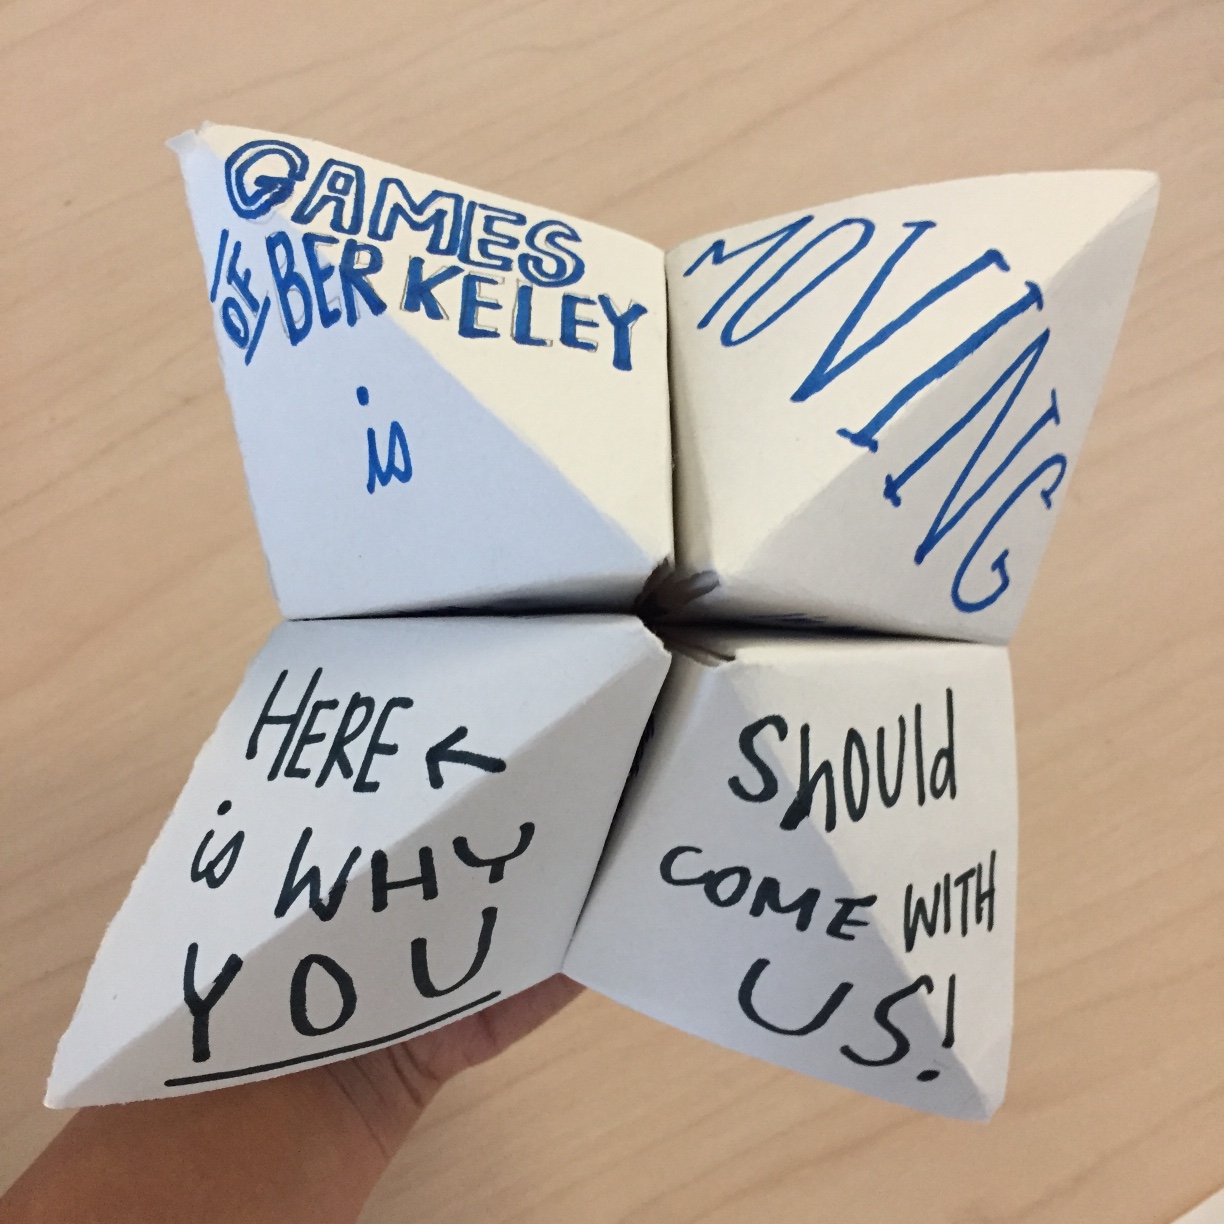 GAMES
OF BERKELEY
is
MOVING
HERE ←
is WHY
YOU
Should
COME WITH
US!